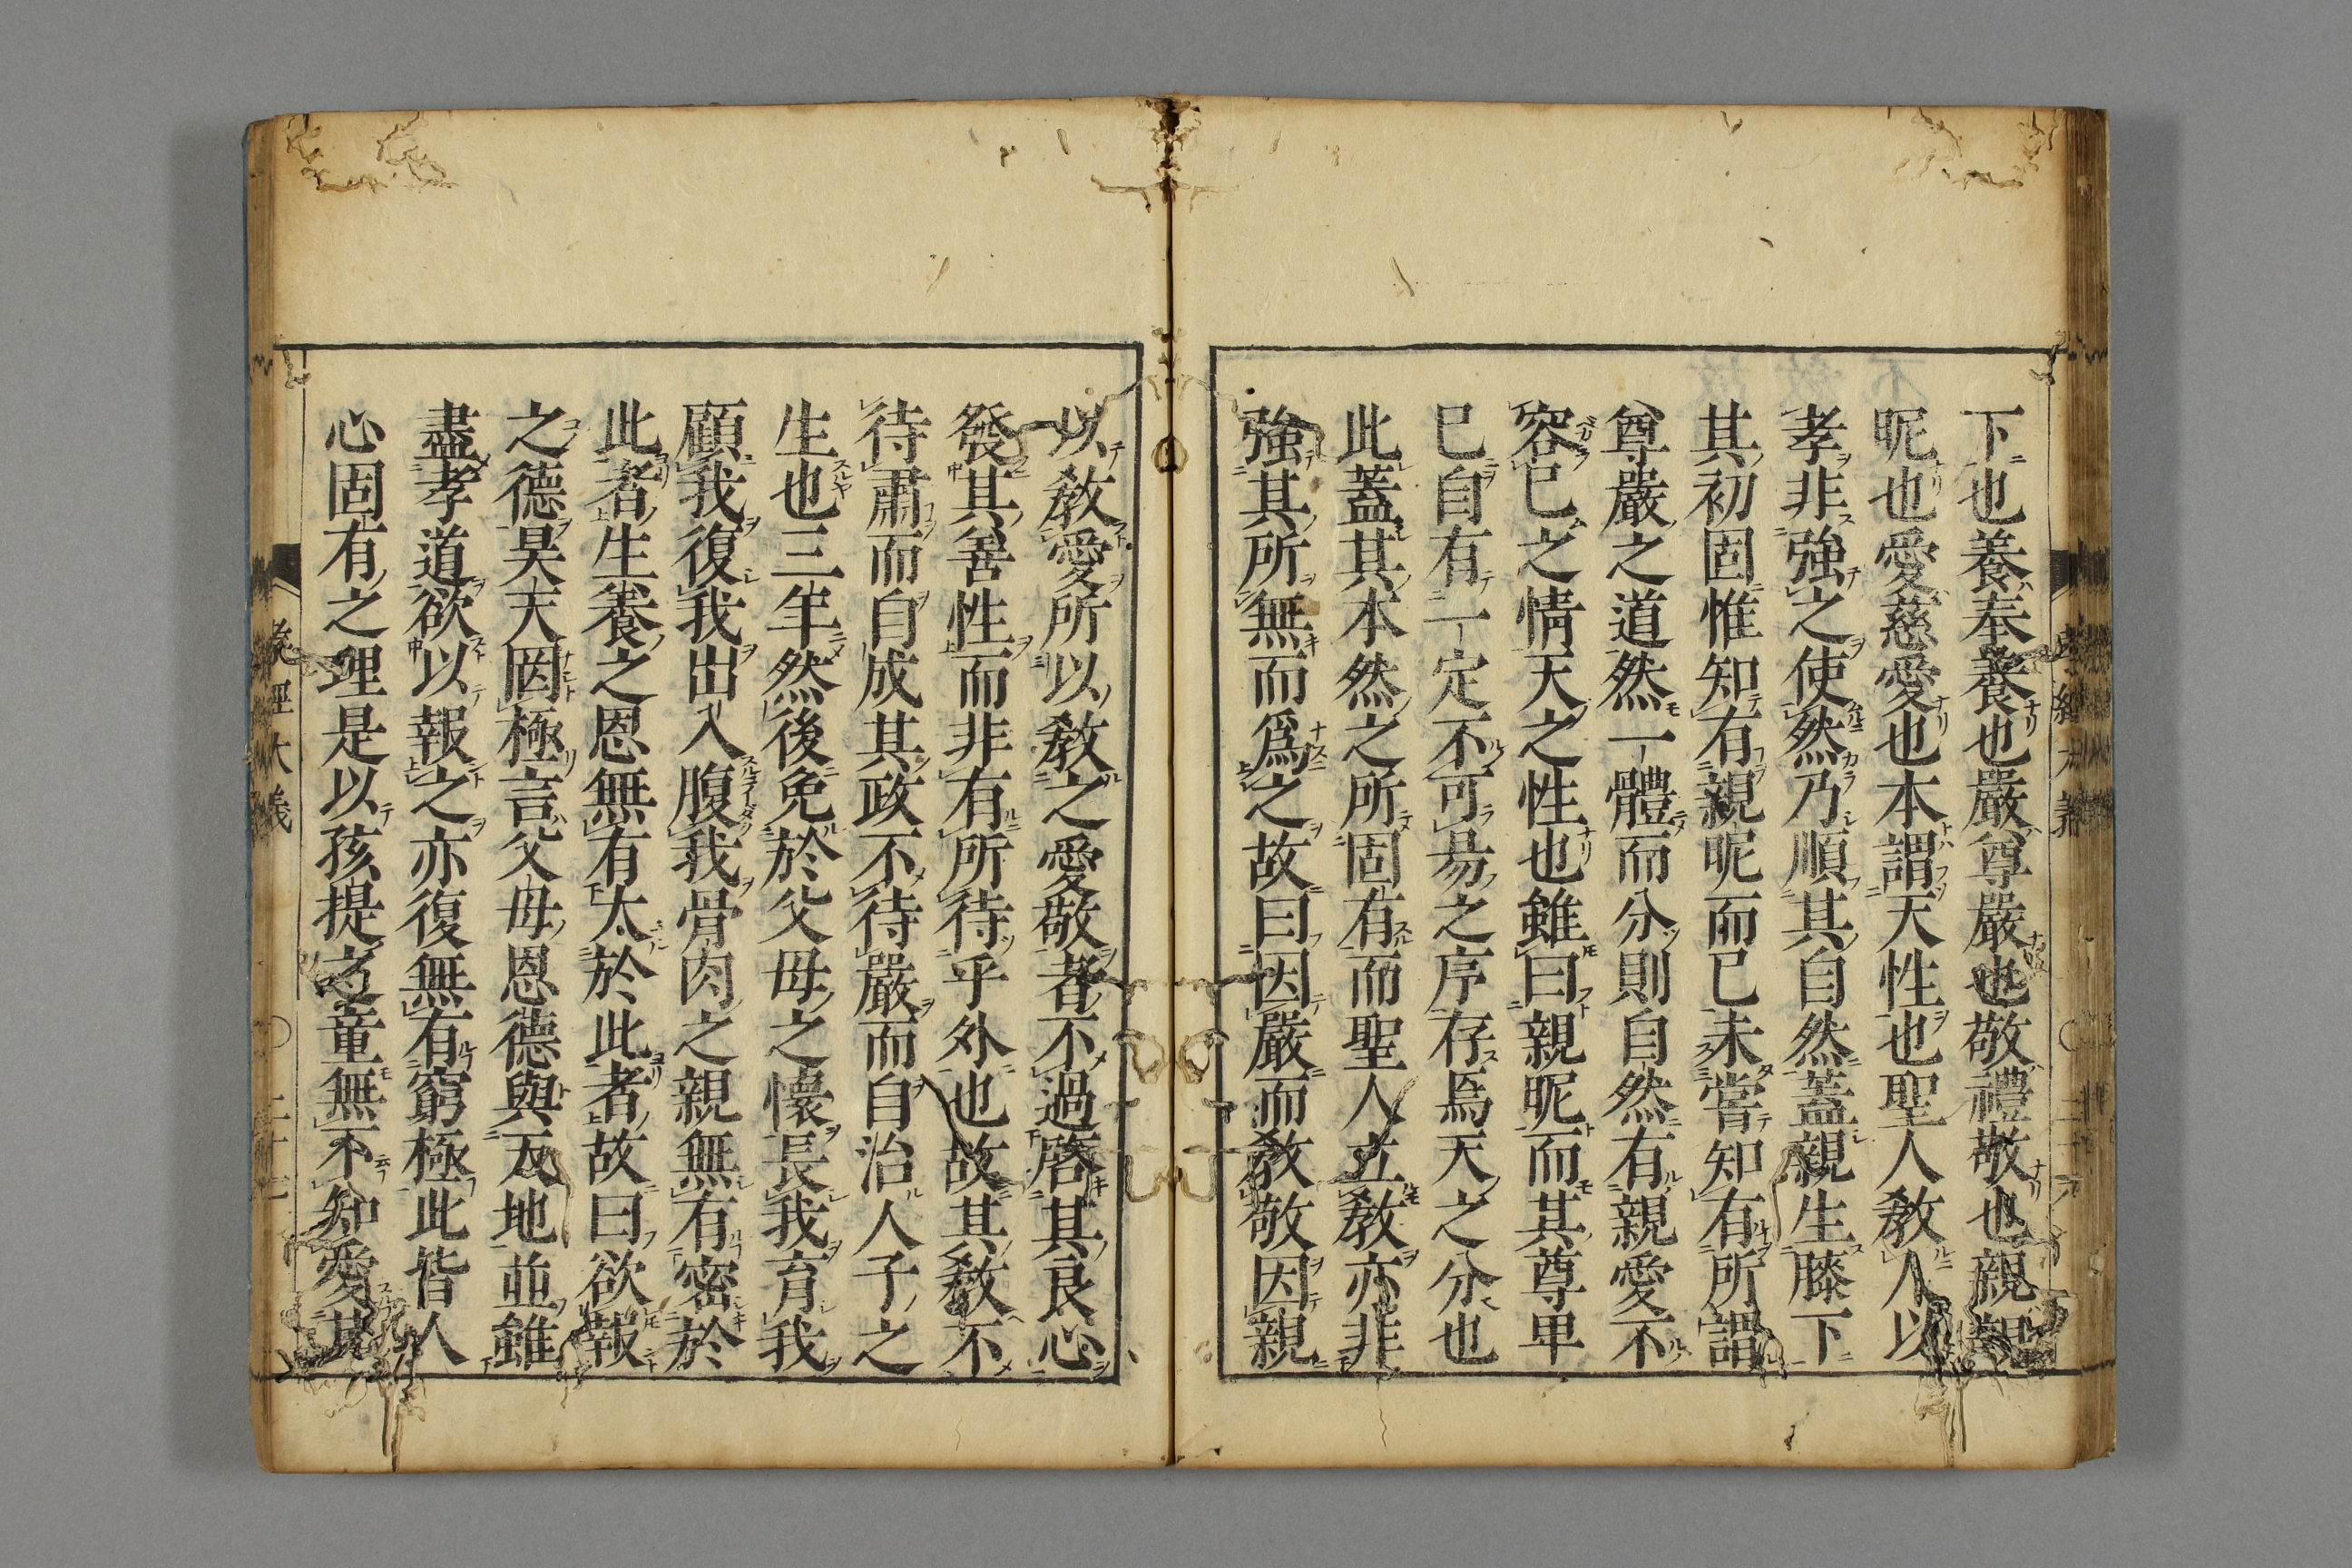 下也養奉養也嚴尊嚴也敬禮敬也親親
昵也愛慈愛也本謂天性也聖人敎人以
孝非強之使然乃順其自然蓋親生膝下
其初固惟知有親昵而已未嘗知有所謂
尊嚴之道然一體而分則自然有親愛不
容已之情天之性也雖曰親昵而其尊卑
已自有一定不可易之序存焉天之分也
此蓋其本然之所固有而聖人立敎亦非
強其所無而爲之故曰因嚴而敎敬因親
以敎愛所以敎之愛敬者不過啓其良心
發其善性而非有所待乎外也故其敎不
待肅而自成其政不待嚴而自治人子之
生也三年然後免於父母之懷長我育我
顧我復我出入腹我骨肉之親無有密於
此者生養之恩無有太於此者故曰欲報
之德昊天罔極言父母恩德與天地並雖
盡孝道欲以報之亦復無有窮極此皆人
心固有之理是以孩提之童無不知愛其
孝經大義 二十七